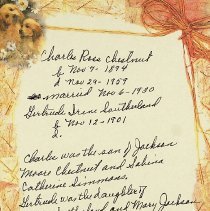 Charles Ross Chestnut
b Nov 7 - 1894
d Nov 29 - 1959
married Nov 6 - 1930
Gertrude Irene Southerland
b Nov 12 - 1901
d.
Charles was the son of Jackson
Moore Chestnut and Sabina
Catherine Simmons.
Gertrude was the daughter of
and Mary Jackson